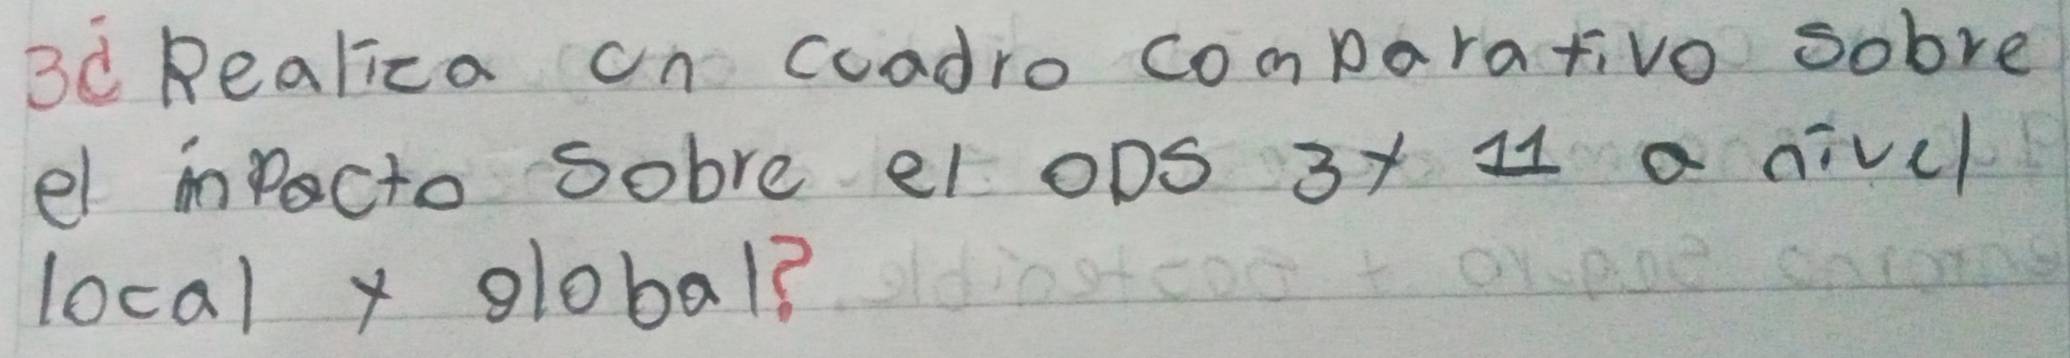 3¿ Realiza un cuadro comparativo sobre
el inpacto sobre el ODS 3 y 11 a nivel
local y global?